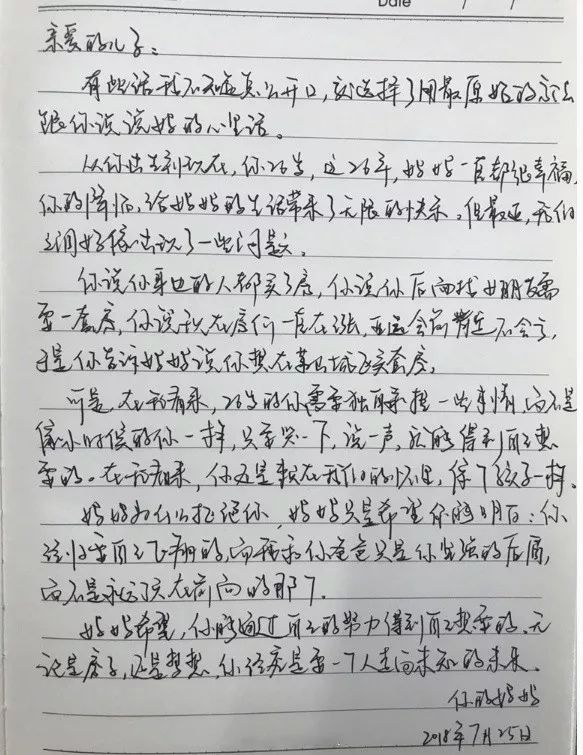 Date / /
亲爱的儿子：
有些话我不知道怎么开口，就选择了用最原始的方法
跟你说说妈的心里话。
从你出生到现在，你26岁，这26年，妈妈一直都很幸福，
你的降临，给妈妈的生活带来了无限的快乐。但最近，我们
之间好像出现了一些问题。
你说你身边的人都买了房，你说你后面找女朋友需
要一套房，你说现在房价一直在涨，亚运会前肯定不会亏，
于是你告诉妈妈说你想在城买套房。
可是，在我看来，26岁的你需要独自承担一些事情，而不是
像小时候的你一样，只要哭一下，说一声，就能得到自己想
要的。在我看来，你还是赖在我们的怀里，像个孩子一样。
妈妈为什么拒绝你，妈妈只是希望你能明白：你
终归要自己飞翔的，而我和你爸爸只是你坚强的后盾，
而不是永远顶在前面的那个。
妈妈希望，你能通过自己的努力得到自己想要的。无
论是房子，还是梦想，你终究是要一个人走向未知的未来。
你的妈妈
2018年7月25日